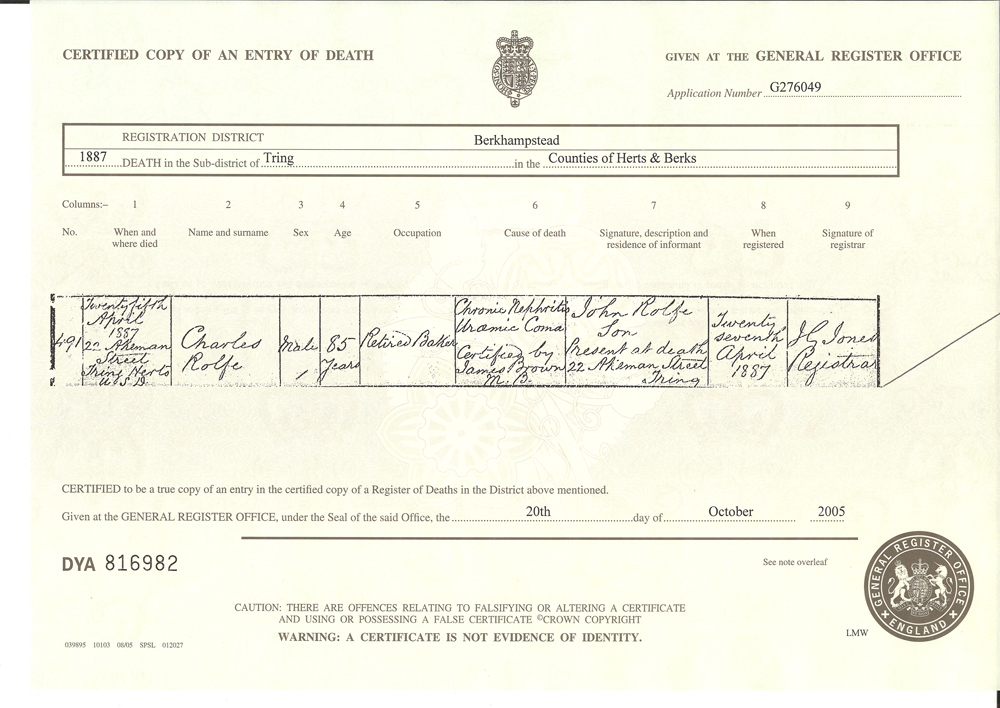 CERTIFIED COPY OF AN ENTRY OF DEATH
GIVEN AT THE GENERAL REGISTER OFFICE
Application Number G276049
REGISTRATION DISTRICT Berkhampstead
1887 DEATH in the Sub-district of Tring in the Counties of Herts & Berks
Columns:– 1 2 3 4 5 6 7 8 9
No. When and where died Name and surname Sex Age Occupation Cause of death Signature, description and residence of informant When registered Signature of registrar
491
Twenty fifth
April
1887
22 Akeman
Street
Tring Herts
U.S.D.
Charles
Rolfe
Male
85
Years
Retired Baker
Chronic Nephritis
Uræmic Coma
Certified by
James Brown
M.B.
John Rolfe
Son
Present at death
22 Akeman Street
Tring
Twenty
seventh
April
1887
JG Jones
Registrar
CERTIFIED to be a true copy of an entry in the certified copy of a Register of Deaths in the District above mentioned.
Given at the GENERAL REGISTER OFFICE, under the Seal of the said Office, the 20th day of October 2005
DYA 816982
See note overleaf
CAUTION: THERE ARE OFFENCES RELATING TO FALSIFYING OR ALTERING A CERTIFICATE
AND USING OR POSSESSING A FALSE CERTIFICATE ©CROWN COPYRIGHT
WARNING: A CERTIFICATE IS NOT EVIDENCE OF IDENTITY.
GENERAL REGISTER OFFICE
ENGLAND
LMW
039895 10103 08/05 SPSL 012027